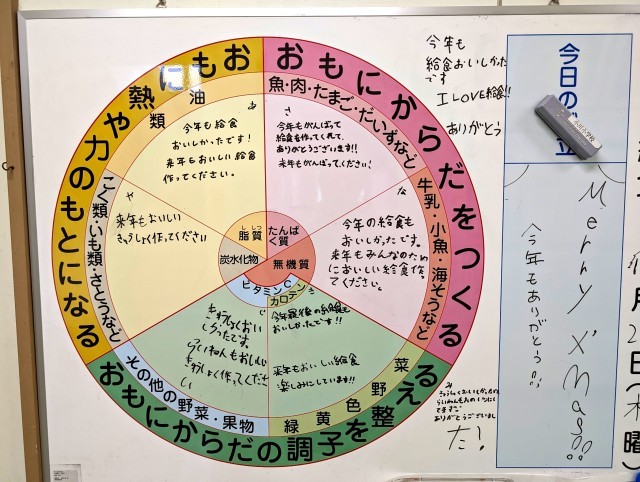 おもに熱や力のもとになる
おもにからだをつくる
おもにからだの調子を整える
油
類
魚・肉・たまご・だいずなど
牛乳・小魚・海そうなど
こく類・いも類・さとうなど
その他の野菜・果物
緑黄色野菜
脂質
ししつ
たんぱ
く質
炭水化物
無機質
ビタミンC
カロテン
今年も給食
おいしかったです!
来年もおいしい給食
作ってください。
今年もがんばって
給食を作ってくれて、
ありがとうございます!!
来年もがんばってください。
来年もおいしい
きゅうしょく作ってください
今年の給食も
おいしかったです。
来年もみんなのため
においしい給食作っ
てください。
きゅうしょくおい
しかったです。
らいねんもおいしい
きゅうしょく作ってくださ
い
おいしかったです!!
来年もおいしい給食
楽しみにしています!!
今年も
給食おいしかった
です
I LOVE給食!!
ありがとう
ありがとうございまし
た!
今日の
Merry X'mas
今年もありがとう
月
日(木
曜)